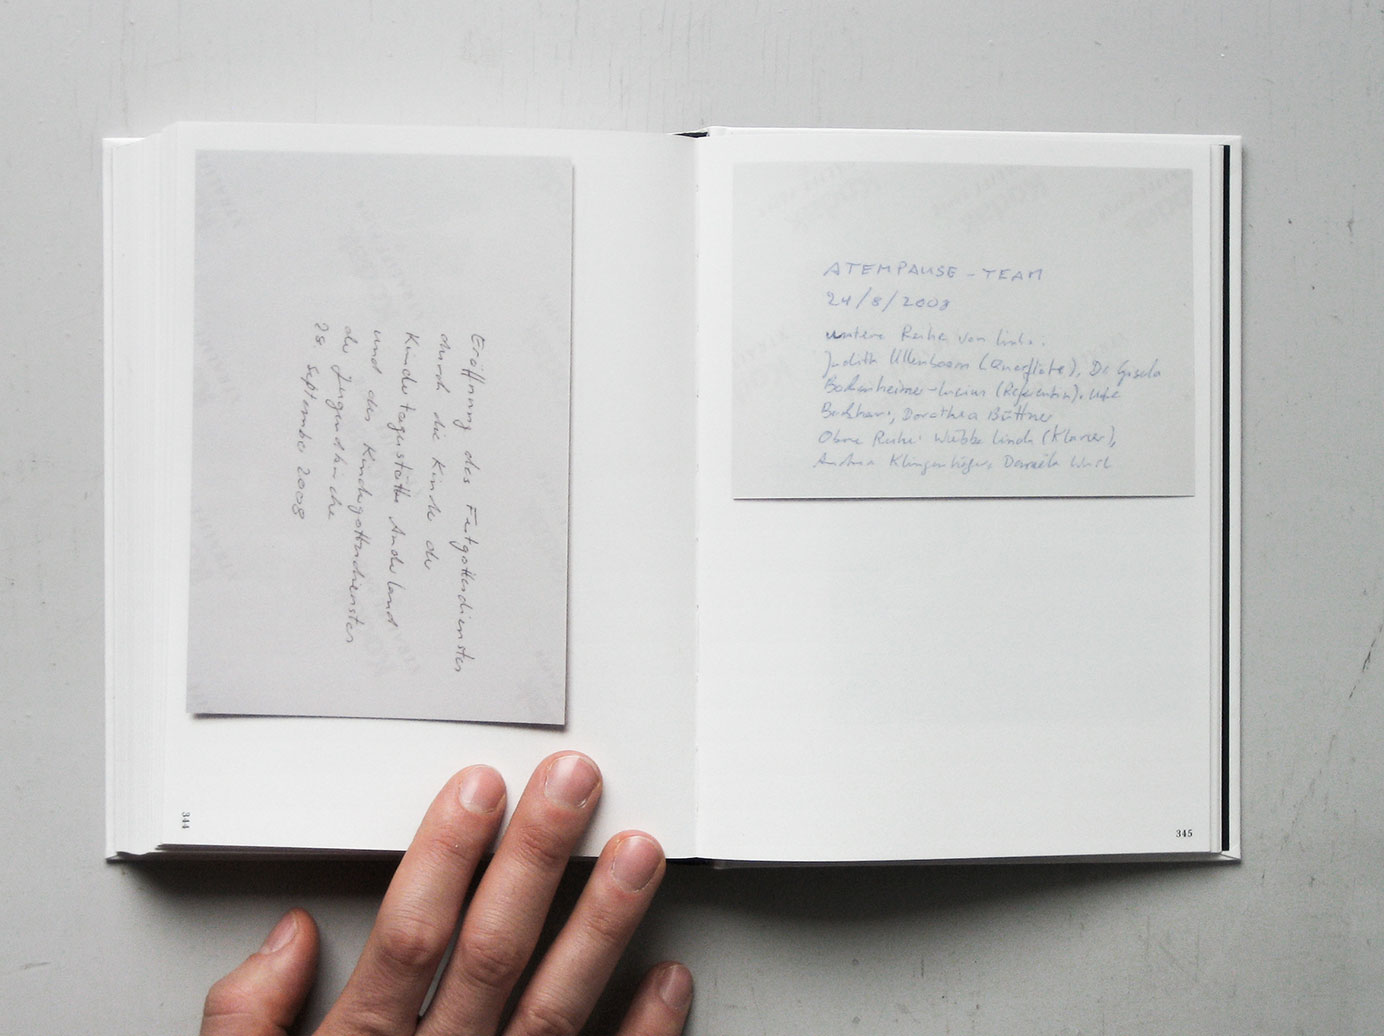 Eröffnung des Festgottesdienstes
durch die Kinder der
Kindertagesstätte Anderland
und des Kindergottesdienstes
der Jugendkirche
28. September 2008
344
ATEMPAUSE - TEAM
24/8/2008
untere Reihe von links:
Judith Ullenboom (Querflöte), Dr. Gisela
(Referentin),
Dorothea Büttner
Obere Reihe: Wiebke Linde (Klavier),
Andrea
345